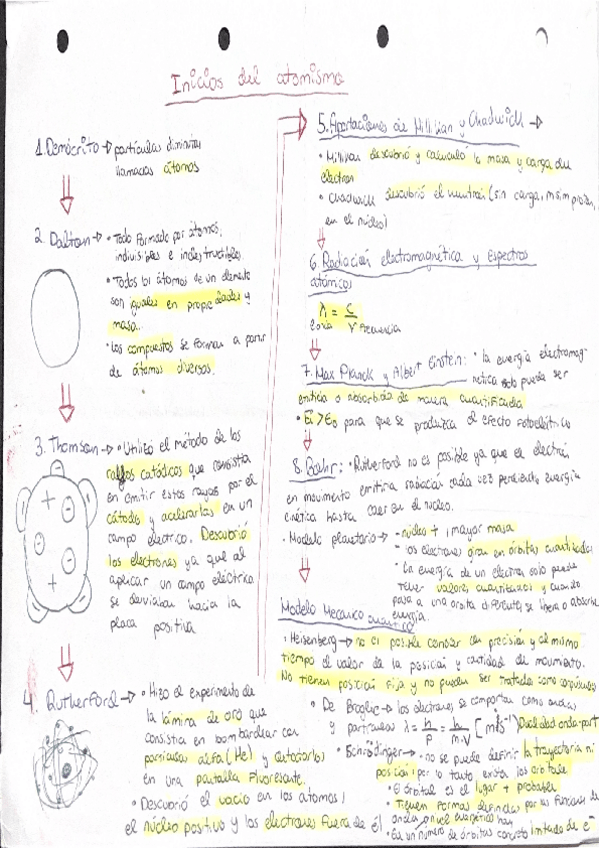 Inicios del atomismo
1. Demócrito → partículas diminutas
llamadas átomos
2. Dalton → • Todo formado por átomos,
indivisibles e indestructibles
• Todos los átomos de un elemento
son iguales en propiedades y
masa.
• Los compuestos se forman a partir
de átomos diversos.
3. Thomson → • Utilizó el método de los
rayos catódicos que consistía
en emitir estos rayos por el
cátodo y acelerarlas en un
campo electrico. Descubrió
los electrones ya que al
aplicar un campo eléctrico
se desviaban hacia la
placa positiva
4. Rutherford → • Hizo el experimento de
la lámina de oro que
consistia en bombardear con
partículas alfa (He) y
en una pantalla fluorescente.
• Descubrió el vacio en los atomos,
el núcleo positivo y los electrones fuera de él
5. Aportaciones de Millikan y Chadwick →
• Millikan descubrió y calculó la masa y carga del
electron
• Chadwick descubrió el neutrón (sin carga, m sim proton,
en el núcleo)
6. Radiación electromagnética y Espectros
atómicos
λ = c / γ
frecuencia
7. Max Planck y Albert Einstein: • la energía electromag-
netica solo puede ser
emitida o absorbida de manera cuantificada
• Ei > E0 para que se produzca el efecto fotoeléctrico
8. Bohr: • Rutherford no es posible ya que el electrón
en movimiento emitiria radiación cada vez perdiendo energía
cinética hasta caer en el núcleo.
• Modelo planetario → - núcleo +, mayor masa
- los electrones giran en órbitas cuantizadas
- La energía de un electron solo puede
tener valores cuantizados y cuando
pasa a una orbita diferente, se libera o absorbe
energía.
Modelo Mecanico cuantico
• Heisenberg → no es posible conocer con precisión y al mismo
tiempo el valor de la posición y cantidad de movimiento.
No tienen posición fija y no pueden ser tratados como corpúsculos
• De Broglie → los electrones se comportan como ondas
y partículas λ = h / p = h / m·v Dualidad onda-part
• Schrödinger → no se puede definir la trayectoria ni
posición, por lo tanto exista los orbitales
• El órbital es el lugar + probable
• Tienen formas definidas por las funciones de
onda, en nivel energético hay
• un número de órbitas concreto limitado de e⁻